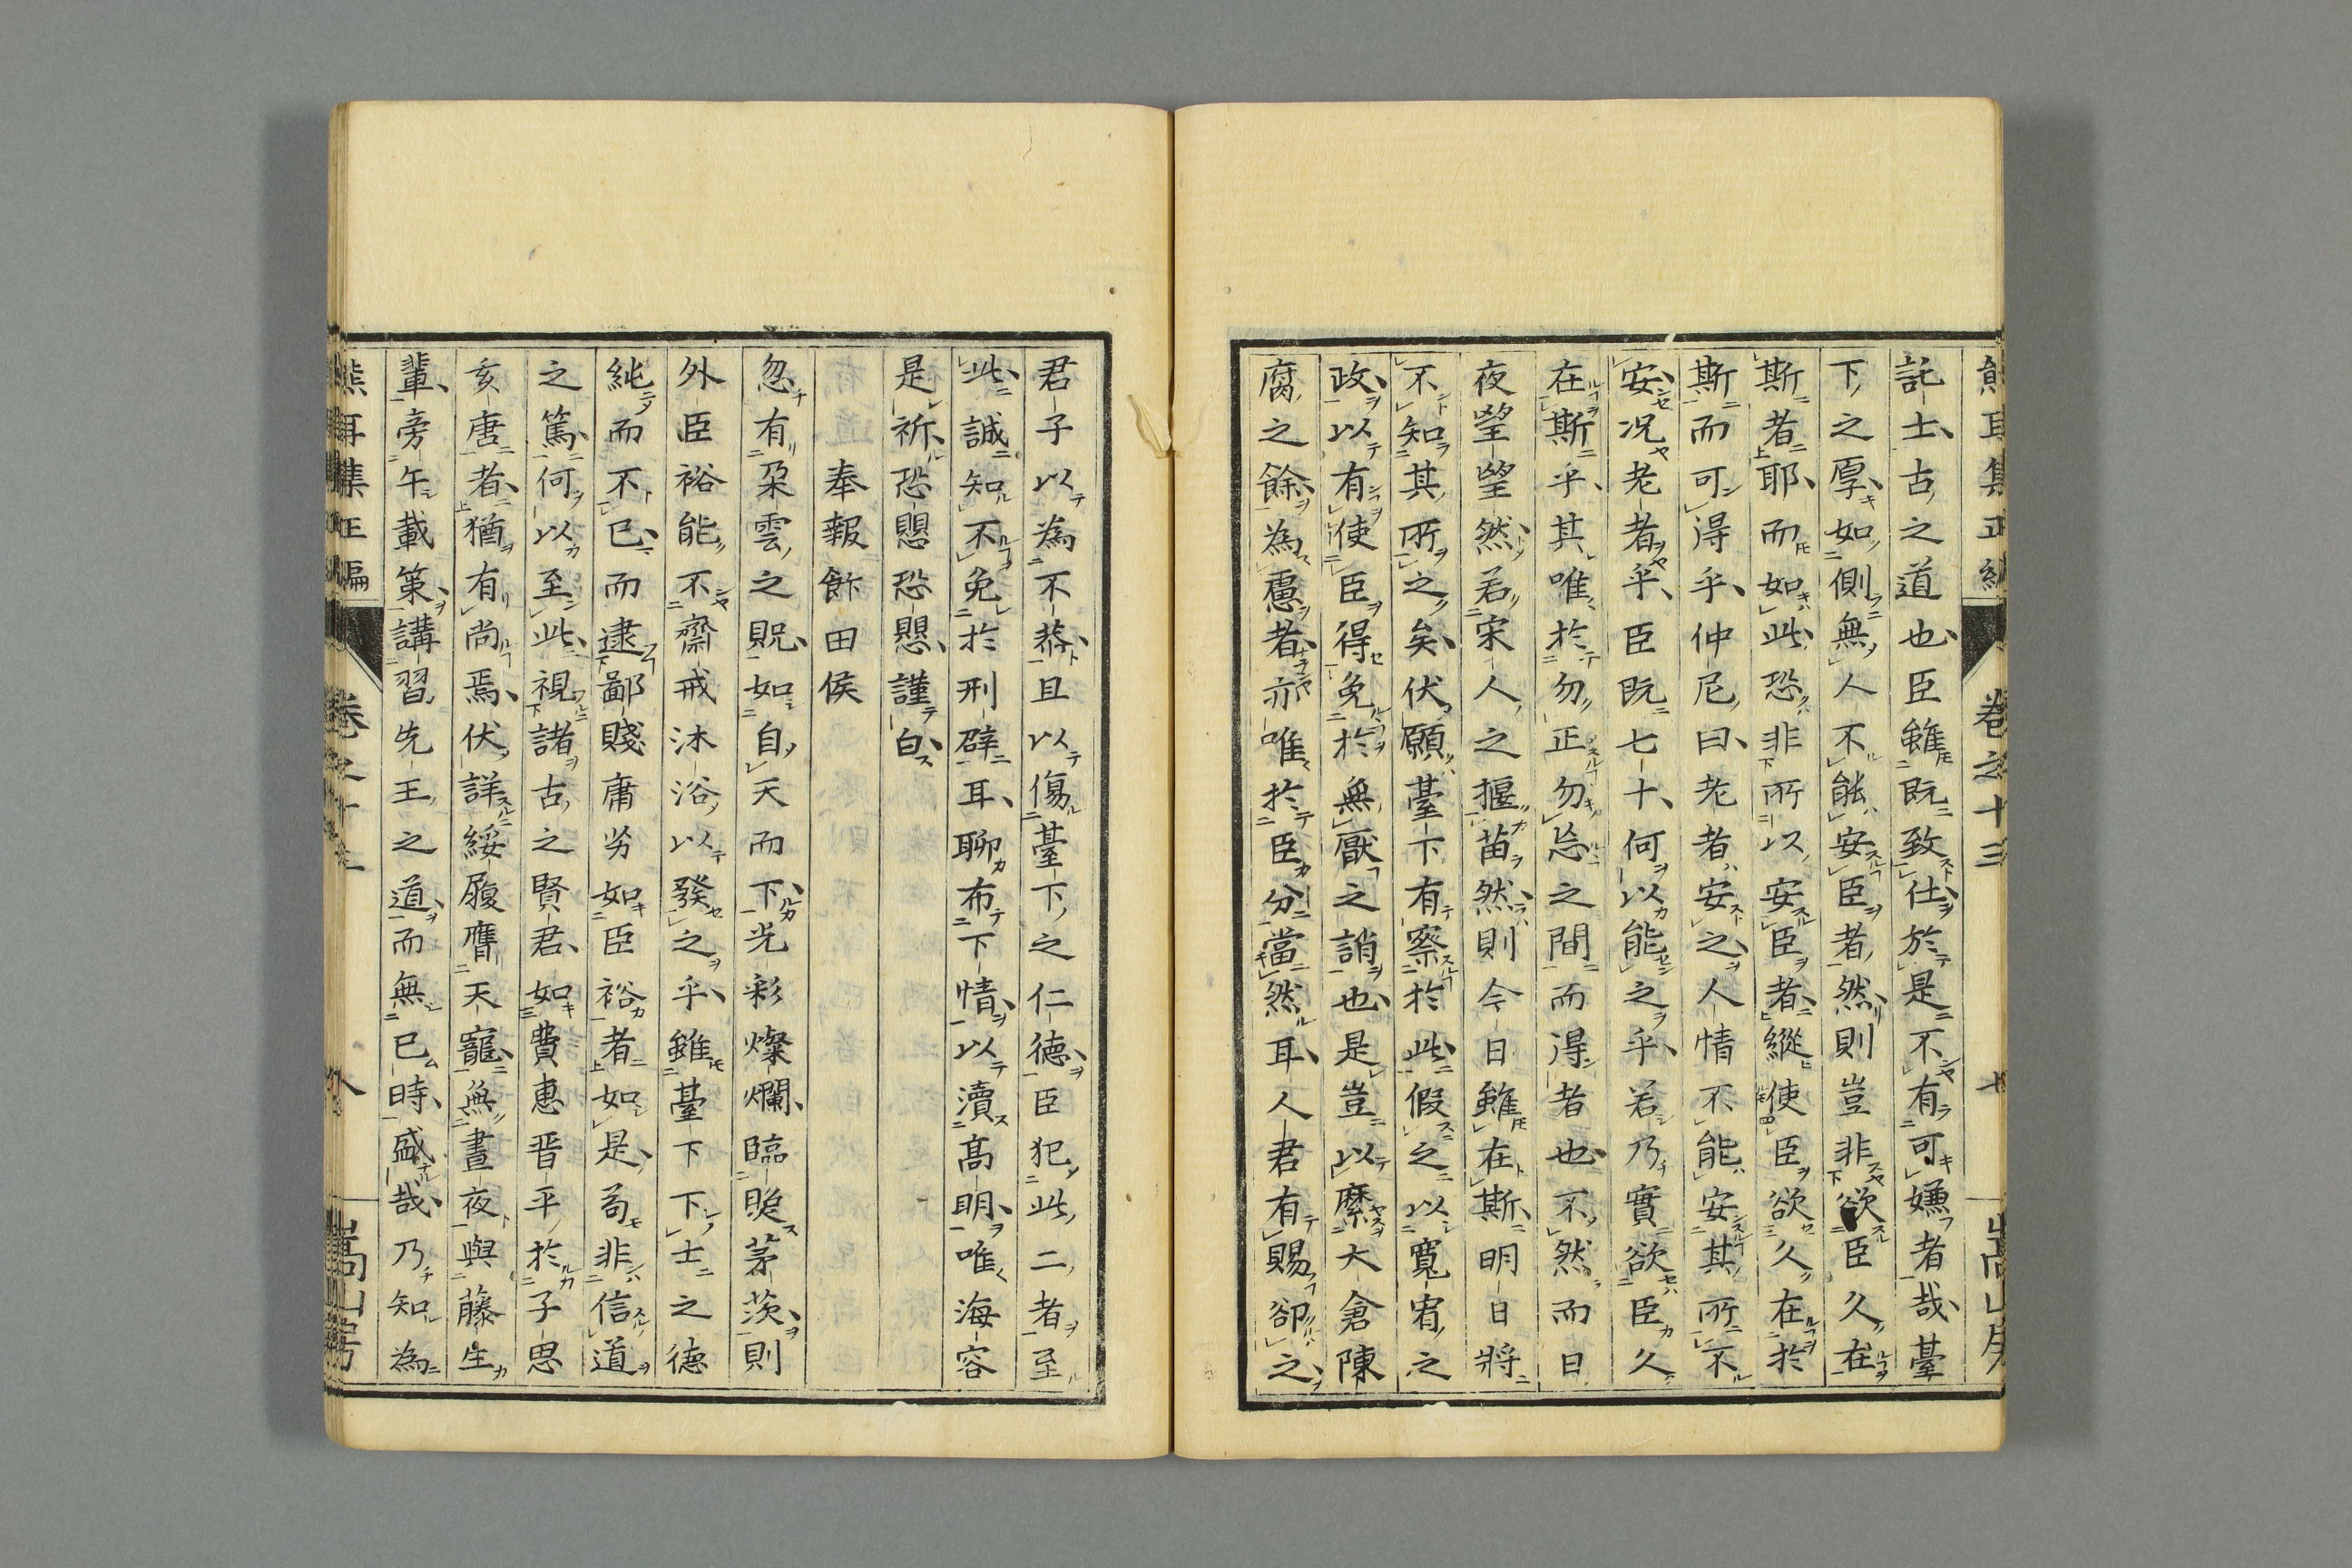 熊耳集正編 卷之十三 七 嵩山房
託士古之道也臣雖既致仕於是不有可嫌者哉臺
下之厚如側無人不能安臣者然則豈非欲臣久在
斯者耶而如此恐非所以安臣者縱使臣欲久在於
斯而可得乎仲尼曰老者安之人情不能安其所不
安況老者乎臣既七十何以能之乎若乃實欲臣久
在斯乎其唯於勿正勿忘之間而得者也不然而日
夜望望然若宋人之揠苗然則今日雖在斯明日將
不知其所之矣伏願臺下有察於此假之以寬宥之
政以有使臣得免於無厭之誚也是豈以縻大倉陳
腐之餘為慮者亦唯於臣分當然耳人君有賜卻之
君子以為不恭且以傷臺下之仁德臣犯此二者至
此誠知不免於刑辟耳聊布下情以瀆高明唯海容
是祈恐思恐思謹白
奉報飰田侯
忽有朶雲之貺如自天而下光彩燦爛臨賤茅茨則
外臣裕能不齋戒沐浴以發之乎雖臺下下士之德
純而不已而逮鄙賤庸劣如臣裕者如是苟非信道
之篤何以至此視諸古之賢君如費惠晉平於子思
亥唐者猶有尚焉伏詳綏履膺天寵無晝夜與藤生
輩旁午載筞講習先王之道而無已時盛哉乃知為
熊耳集正編 卷之十三 八 嵩山房